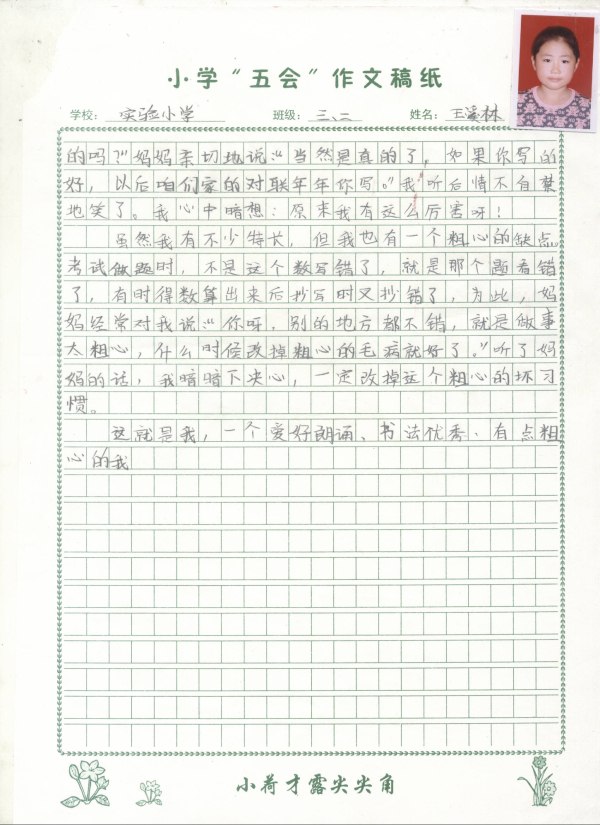 小学“五会”作文稿纸
学校: 实验小学 班级: 三、二 姓名: 王溪林
的吗?”妈妈亲切地说:“当然是真的了，如果你写的
好，以后咱们家的对联年年你写。”我听后情不自禁
地笑了。我心中暗想:原来我有这么厉害呀!
虽然我有不少特长，但我也有一个粗心的缺点。
考试做题时，不是这个数写错了，就是那个题看错
了，有时得数算出来后抄写时又抄错了，为此，妈
妈经常对我说:“你呀，别的地方都不错，就是做事
太粗心，什么时候改掉粗心的毛病就好了。”听了妈
妈的话，我暗暗下决心，一定改掉这个粗心的坏习
惯。
这就是我，一个爱好朗诵、书法优秀、有点粗
心的我
小荷才露尖尖角